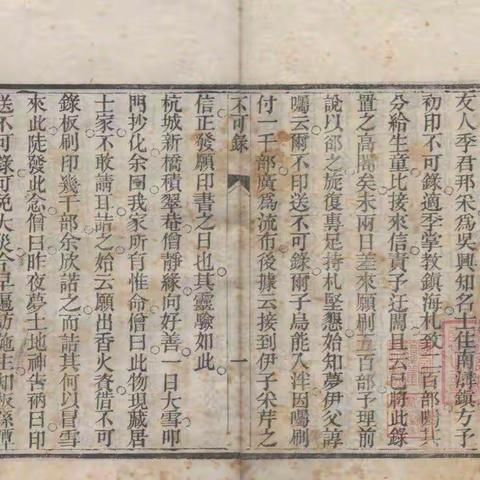 友人季君那采爲吳興知名士住南潯鎮方予
初印不可錄適季掌教鎮海札致二百部囑其
分給生童比接來信責予迂闊且云已將此錄
置之高閣矣未兩日差來願刷五百部予理前
說以郤之旋復專足持札堅懇始知夢伊父諄
囑云爾不印送不可錄爾子烏能入泮因囑刷
付一千部廣爲流布後據云接到伊子采芹之
不可錄
一
信正發願印書之日也其靈驗如此
杭城新橋積翠菴僧靜緣向好善一日大雪叩
門抄化余固我家所有惟命僧曰此物現藏居
士家不敢請耳詰之始云願出香火資借不可
錄板刷印幾千部余欣諾之而詰其何以冒雪
來此陡發此念僧曰昨夜夢土地神告衲曰印
送不可錄可免大災今早遍訪施主知板係潭